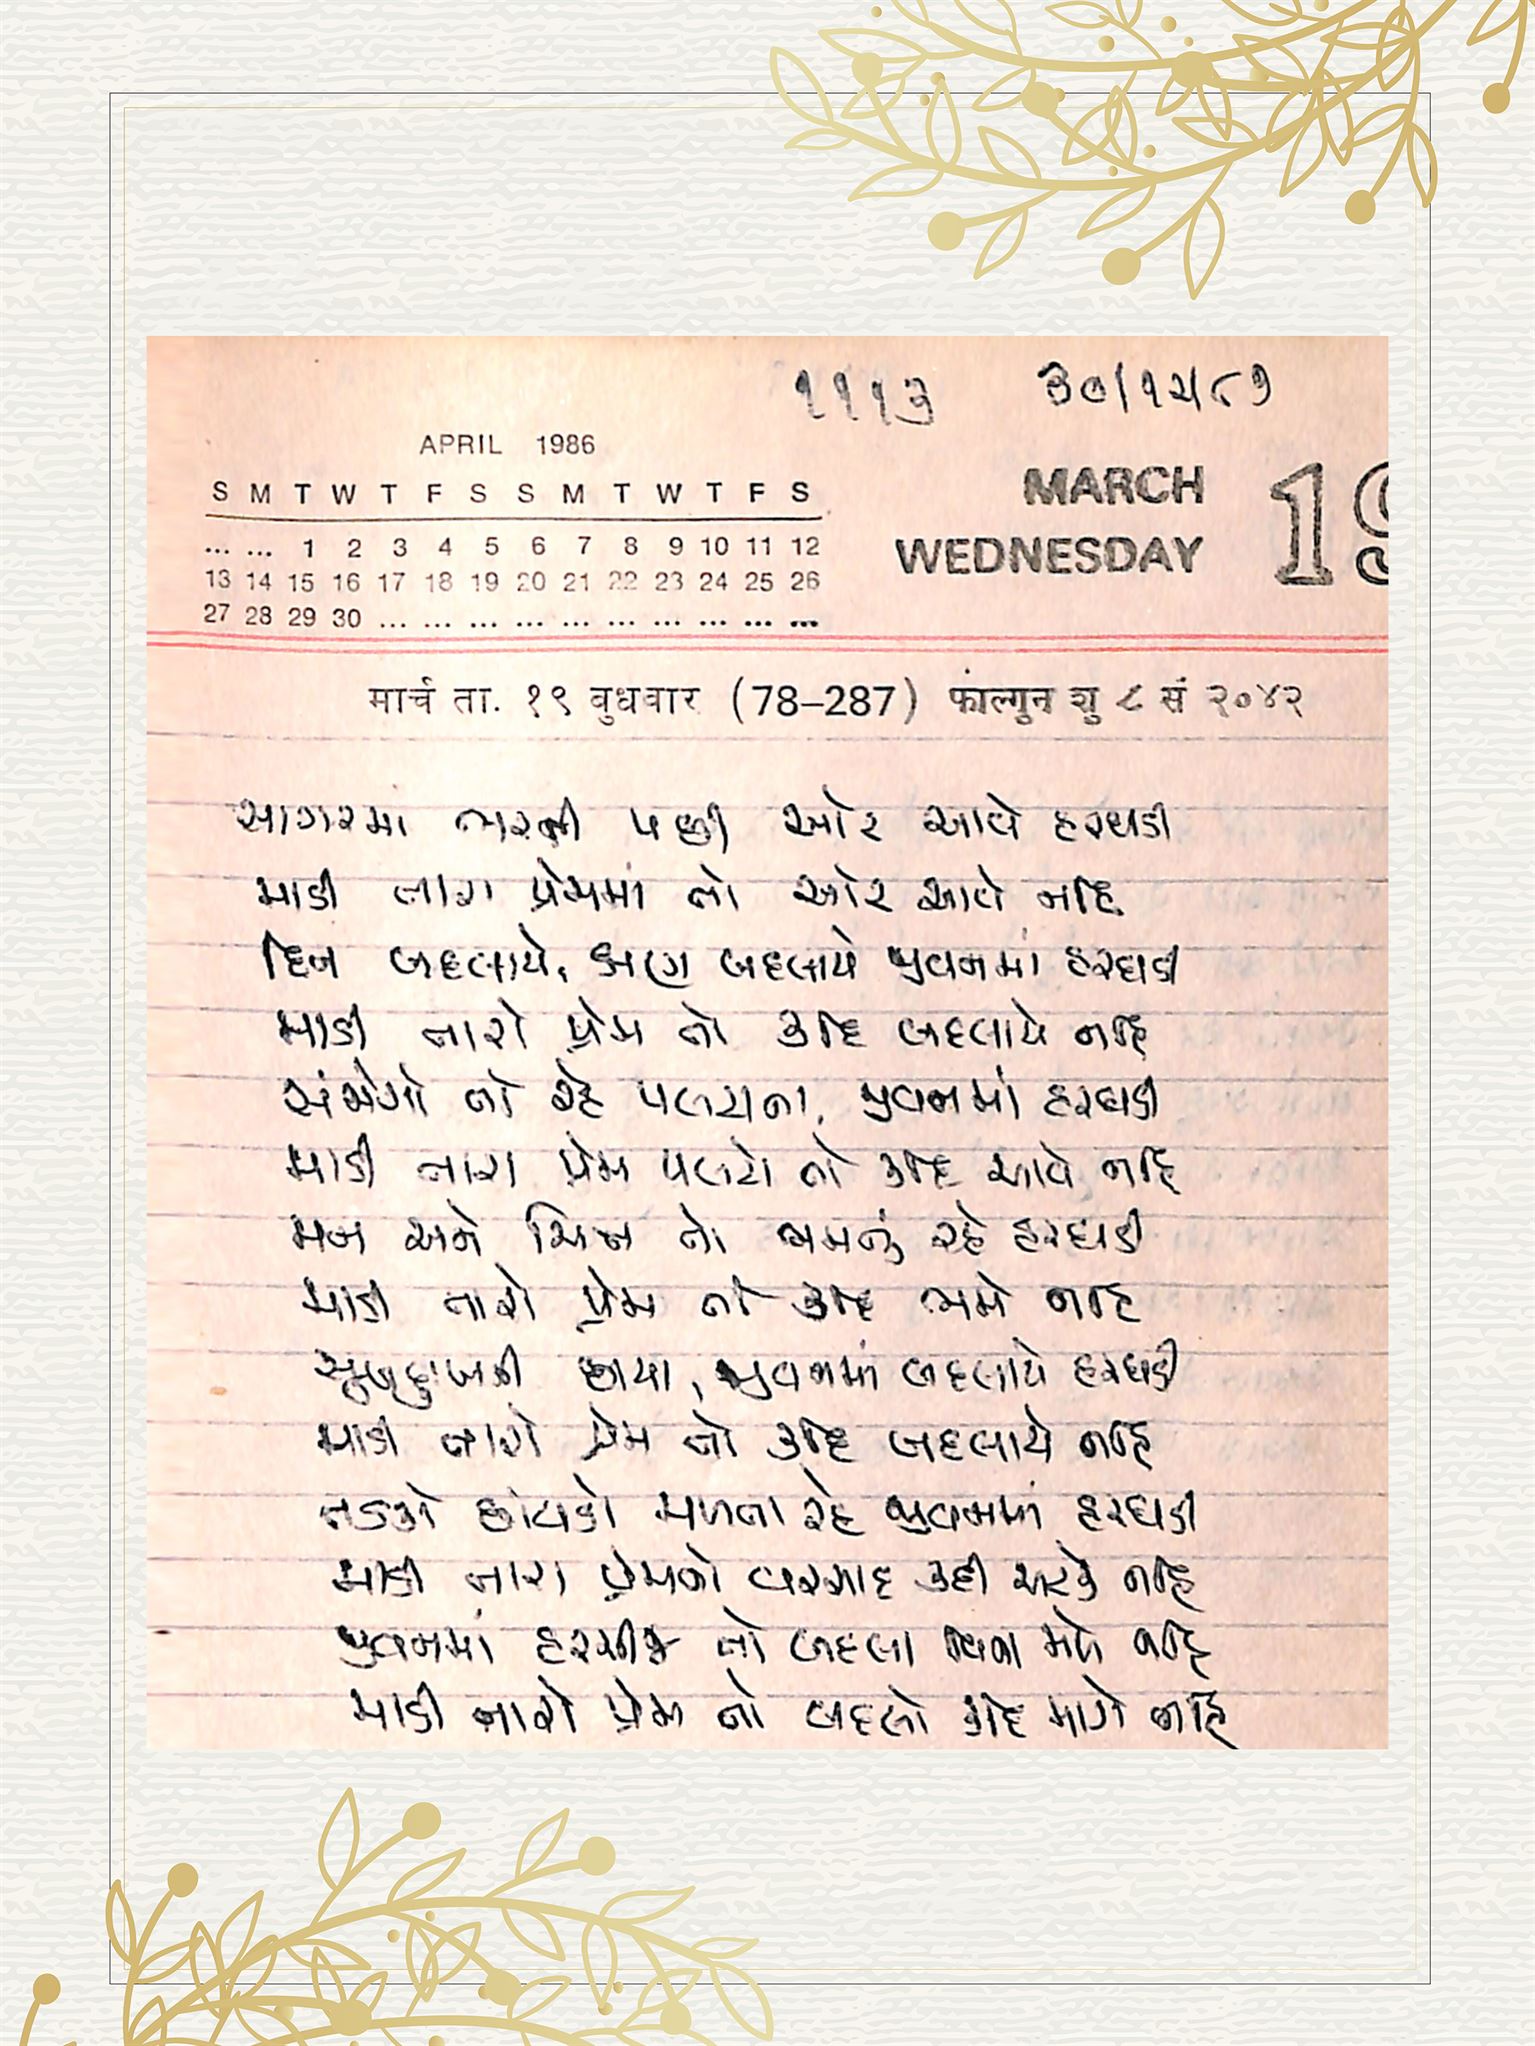 ૧૧૧૩ ૩૦/૧૨/૮૭
APRIL 1986
S M T W T F S S M T W T F S
... ... 1 2 3 4 5 6 7 8 9 10 11 12
13 14 15 16 17 18 19 20 21 22 23 24 25 26
27 28 29 30 ... ... ... ... ... ... ... ... ... ...
MARCH
WEDNESDAY 19
मार्च ता. १९ बुधवार (78–287) फाल्गुन शु ८ सं २०४२
સાગરમાં ભરતી પછી ઓટ આવે હરઘડી
માડી તારા પ્રેમમાં તો ઓટ આવે નહિ
દિન બદલાયે, ક્ષણ બદલાયે જીવનમાં હરઘડી
માડી તારો પ્રેમ તો કદિ બદલાયે નહિ
સંજોગો તો રહે પલટાતા, જીવનમાં હરઘડી
માડી તારા પ્રેમ પલટો તો કદિ આવે નહિ
મન અને ચિત્ત તો ભમતું રહે હરઘડી
માડી તારો પ્રેમ તો કદિ ભમે નહિ
સુખદુઃખની છાયા, જીવનમાં બદલાયે હરઘડી
માડી તારો પ્રેમ તો કદિ બદલાયે નહિ
તડકો છાંયડો મળતા રહે જીવનમાં હરઘડી
માડી તારા પ્રેમનો વરસાદ કદી અટકે નહિ
જીવનમાં હરચીજ તો બદલા વિના મળે નહિ
માડી તારો પ્રેમ તો બદલો કદિ માગે નહિ